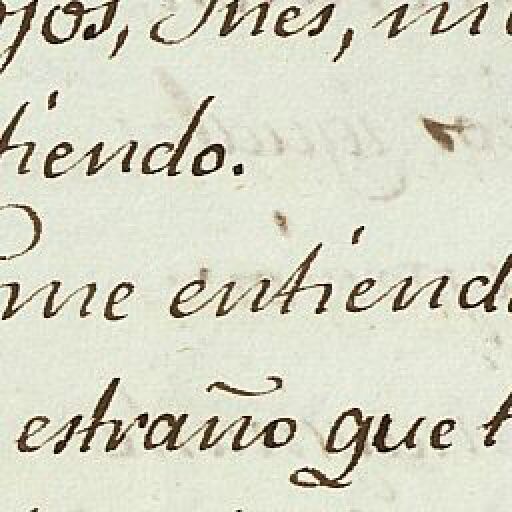 ojos, Ines, m
tiendo.
me entiend
estraño que t